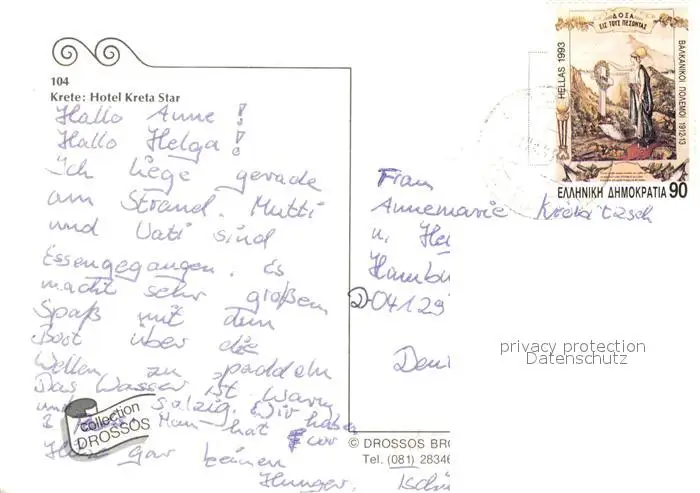 104
Krete: Hotel Kreta Star
Hallo Anne!
Hallo Helga!
Ich liege gerade
am Strand. Mutti
und Vati sind
Essengegangen. Es
macht sehr großen
Spaß mit dem
Boot über die
Wellen zu paddeln
Das Wasser ist warm
und salzig. Wir haben
Man hat vor
gar keinen
Hunger.
collection
DROSSOS
© DROSSOS BRO
Tel. (081) 28346
Frau
Annemarie
u. Hel
Hambu
D-04129
ΔΟΞΑ
ΕΙΣ ΤΟΥΣ ΠΕΣΟΝΤΑΣ
HELLAS 1993
ΒΑΛΚΑΝΙΚΟΙ ΠΟΛΕΜΟΙ 1912-13
ΕΛΛΗΝΙΚΗ ΔΗΜΟΚΡΑΤΙΑ 90
privacy protection
Datenschutz